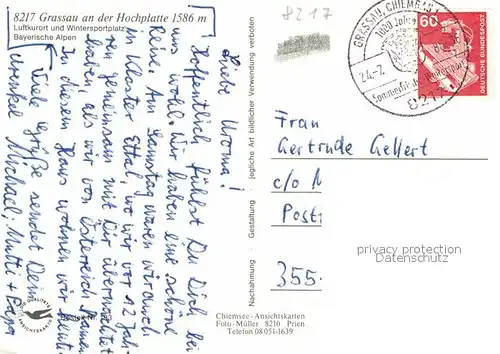 8217 Grassau an der Hochplatte 1586 m
Luftkurort und Wintersportplatz
Bayerische Alpen
8217
Liebe Uroma!
Hoffentlich fühlst Du Dich bei
uns wohl. Wir haben eine schöne
Reise. Am Samstag waren wir auch
im Kloster Ettal, wo wir vor 12 Jahren
gemeinsam mit Dir übernachtet
In diesem Haus wohnen wir heute
als wir von Österreich kamen
Viele Grüße sendet Dein
Urenkel Michael, Mutti + Papa
Nachahmung · Gestaltung · jegliche Art bildlicher Verwendung verboten
GRASSAU, CHIEMGAU
1000 Jahre
24.-7.
8217
60
DEUTSCHE BUNDESPOST
Frau
Gertrude Gellert
c/o
Post
355
privacy protection
DIE QUALITÄTS
ANSICHTSKARTEN
Chiemsee-Ansichtskarten
Foto-Müller 8210 Prien
Telefon 08051-1639